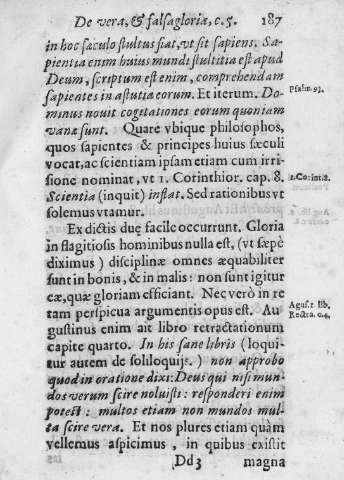 De vera, & falsa gloria, c. 5. 187
in hoc sæculo stultus fiat, vt sit sapiens. Sa-
pientia enim huius mundi stultitia est apud
Deum, scriptum est enim, comprehendam
sapientes in astutia eorum. Et iterum. Do-
Psalm. 93.
minus nouit cogitationes eorum quoniam
vanæ sunt. Quare vbique philosophos,
quos sapientes & principes huius sæculi
vocat, ac scientiam ipsam etiam cum irri-
sione nominat, vt 1. Corinthior. cap. 8.
1. Corint. 8.
Scientia (inquit) inflat. Sed rationibus vt
solemus vtamur.
Ex dictis duę facile occurrunt. Gloria
in flagitiosis hominibus nulla est, (vt sæpè
diximus) disciplinæ omnes æquabiliter
sunt in bonis, & in malis: non sunt igitur
eæ, quæ gloriam efficiant. Nec verò in re
tam perspicua argumentis opus est. Au
August. lib.
Retra. c. 4.
gustinus enim ait libro retractationum
capite quarto. In his sane libris (loqui-
tur autem de soliloquijs.) non approbo
quod in oratione dixi: Deus qui nisi mun-
dos verum scire noluisti: responderi enim
potest: multos etiam non mundos mul-
ta scire vera. Et nos plures etiam quàm
vellemus aspicimus, in quibus existit
Dd3 magna